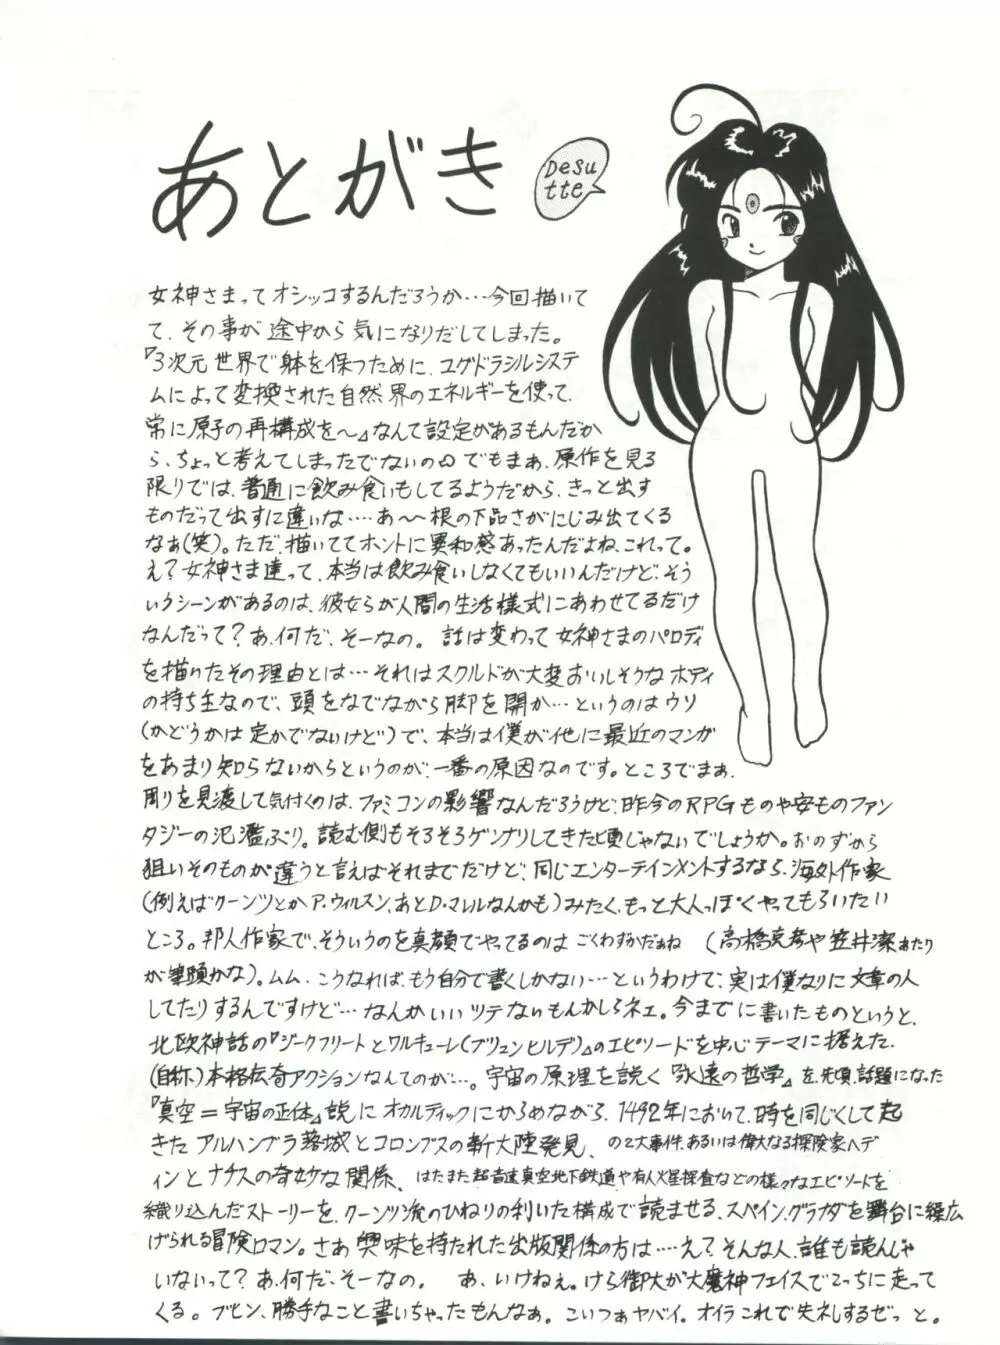 あとがき
Desu
tte
女神さまってオシッコするんだろうか…今回描いて
て、その事が途中から気になりだしてしまった。
『3次元世界で躰を保つために、ユグドラシルシステ
ムによって変換された自然界のエネルギーを使って、
常に原子の再構成を〜』なんて設定があるもんだか
ら、ちょっと考えてしまったでないの∞でもまぁ、原作を見る
限りでは、普通に飲み食いもしてるようだから、きっと出す
ものだって出すに違いな‥‥あ〜〜根の下品さがにじみ出てくる
なぁ(笑)。ただ、描いててホントに異和感あったんだよね、これって。
え?女神さま達って、本当は飲み食いしなくてもいいんだけど、そう
いうシーンがあるのは、彼女らが人間の生活様式にあわせてるだけ
なんだって?あ、何だ、そーなの。 話は変わって女神さまのパロディ
を描いたその理由とは…それはスクルドが大変おいしそうなボディ
の持ち主なので、頭をなでながら脚を開か…というのはウソ
(かどうかは定かでないけど)で、本当は僕が他に最近のマンガ
をあまり知らないからというのが、一番の原因なのです。ところでまぁ、
周りを見渡して気付くのは、ファミコンの影響なんだろうけど、昨今のRPGものや安ものファン
タジーの氾濫ぶり。読む側もそろそろゲンナリしてきた頃じゃないでしょうか。おのずから
狙いそのものが違うと言えばそれまでだけど、同じエンターテインメントするなら、海外作家
(例えばクーンツとかP・ウィルスン、あとD・マレルなんかも)みたく、もっと大人っぽくやってもらいたい
ところ。邦人作家で、そういうのを真顔でやってるのはごくわずかだぁね (高橋克彦や笠井潔あたり
が筆頭かな)。ムム、こうなれば、もう自分で書くしかない…というわけで、実は僕なりに文章の人
してたりするんですけど…なんかいいツテないもんかしらネェ。今までに書いたものというと、
北欧神話の『ジークフリートとワルキューレ(ブリュンヒルデ)』のエピソードを中心テーマに据えた、
(自称)本格伝奇アクションなんてのが…。宇宙の原理を説く『永遠の哲学』を、先頃、話題になった
『真空=宇宙の正体』説にオカルティックにからめながら、1492年において、時を同じくして起
きたアルハンブラ落城とコロンブスの新大陸発見、の2大事件、あるいは偉大なる探険家ヘディ
ンとナチスの奇妙な関係、はたまた超音速真空地下鉄道や有人火星探査などの様々なエピソードを
織り込んだストーリーを、クーンツ流のひねりの利いた構成で読ませる、スペイン、グラナダを舞台に繰広
げられる冒険ロマン。さあ興味を持たれた出版関係の方は‥‥え?そんな人、誰も読んじゃ
いないって?あ、何だ、そーなの。 あ、いけねぇ。けら御大が大魔神フェイスでこっちに走って
くる。ブヒン、勝手なこと書いちゃったもんなぁ。こいつぁヤバイ。オイラこれで失礼するぜっと。